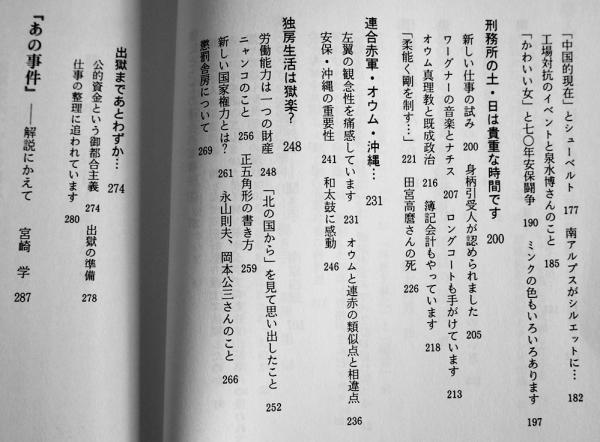 「中国的現在」とシューベルト 177 南アルプスがシルエットに… 182
工場対抗のイベントと泉水博さんのこと 185
「かわいい女」と七〇年安保闘争 190 ミンクの色もいろいろあります 197
刑務所の土・日は貴重な時間です 200
新しい仕事の試み 200 身柄引受人が認められました 205
ワーグナーの音楽とナチス 207 ロングコートも手がけています 213
オウム真理教と既成政治 216 簿記会計もやっています 218
「柔能く剛を制す…」 221 田宮高麿さんの死 226
連合赤軍・オウム・沖縄… 231
左翼の観念性を痛感しています 231 オウムと連赤の類似点と相違点 236
安保・沖縄の重要性 241 和太鼓に感動 246
独房生活は獄楽? 248
労働能力は一つの財産 248 「北の国から」を見て思い出したこと 252
ニャンコのこと 256 正五角形の書き方 259
新しい国家権力とは? 261 永山則夫、岡本公三さんのこと 266
懲罰舎房について 269
出獄まであとわずか… 274
公的資金という御都合主義 274 出獄の準備 278
仕事の整理に追われています 280
『あの事件』――解説にかえて 宮崎 学 287